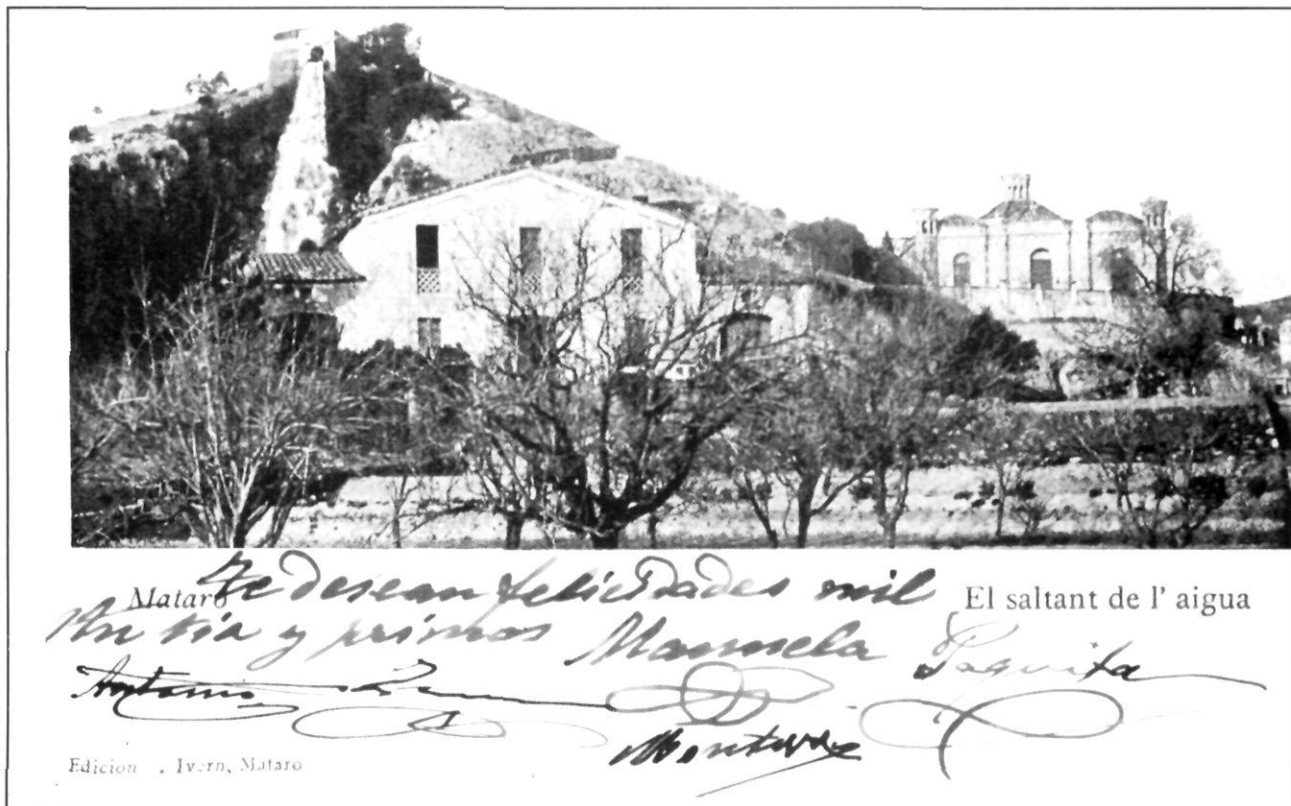 Mataró
El saltant de l' aigua
Te desean felicidades mil
tia y primos Manuela Paquita
Antonio
Edicion . Ivern, Mataro